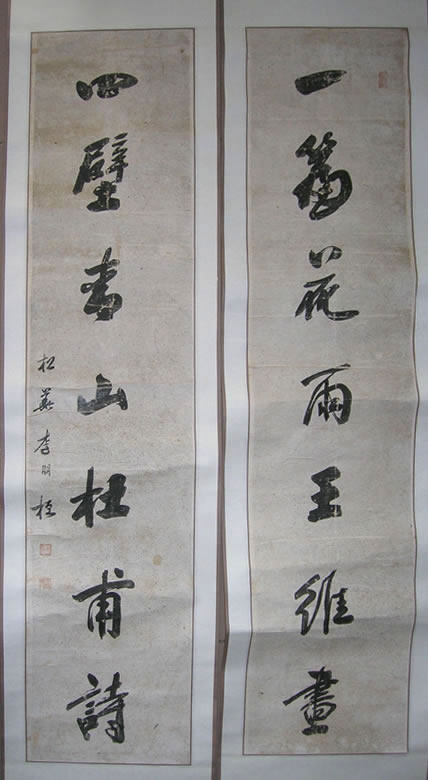 一簾花雨王維畫
四壁青山杜甫詩
松 李明